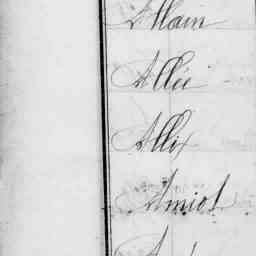 Allain
Allée
Allix
Amiot